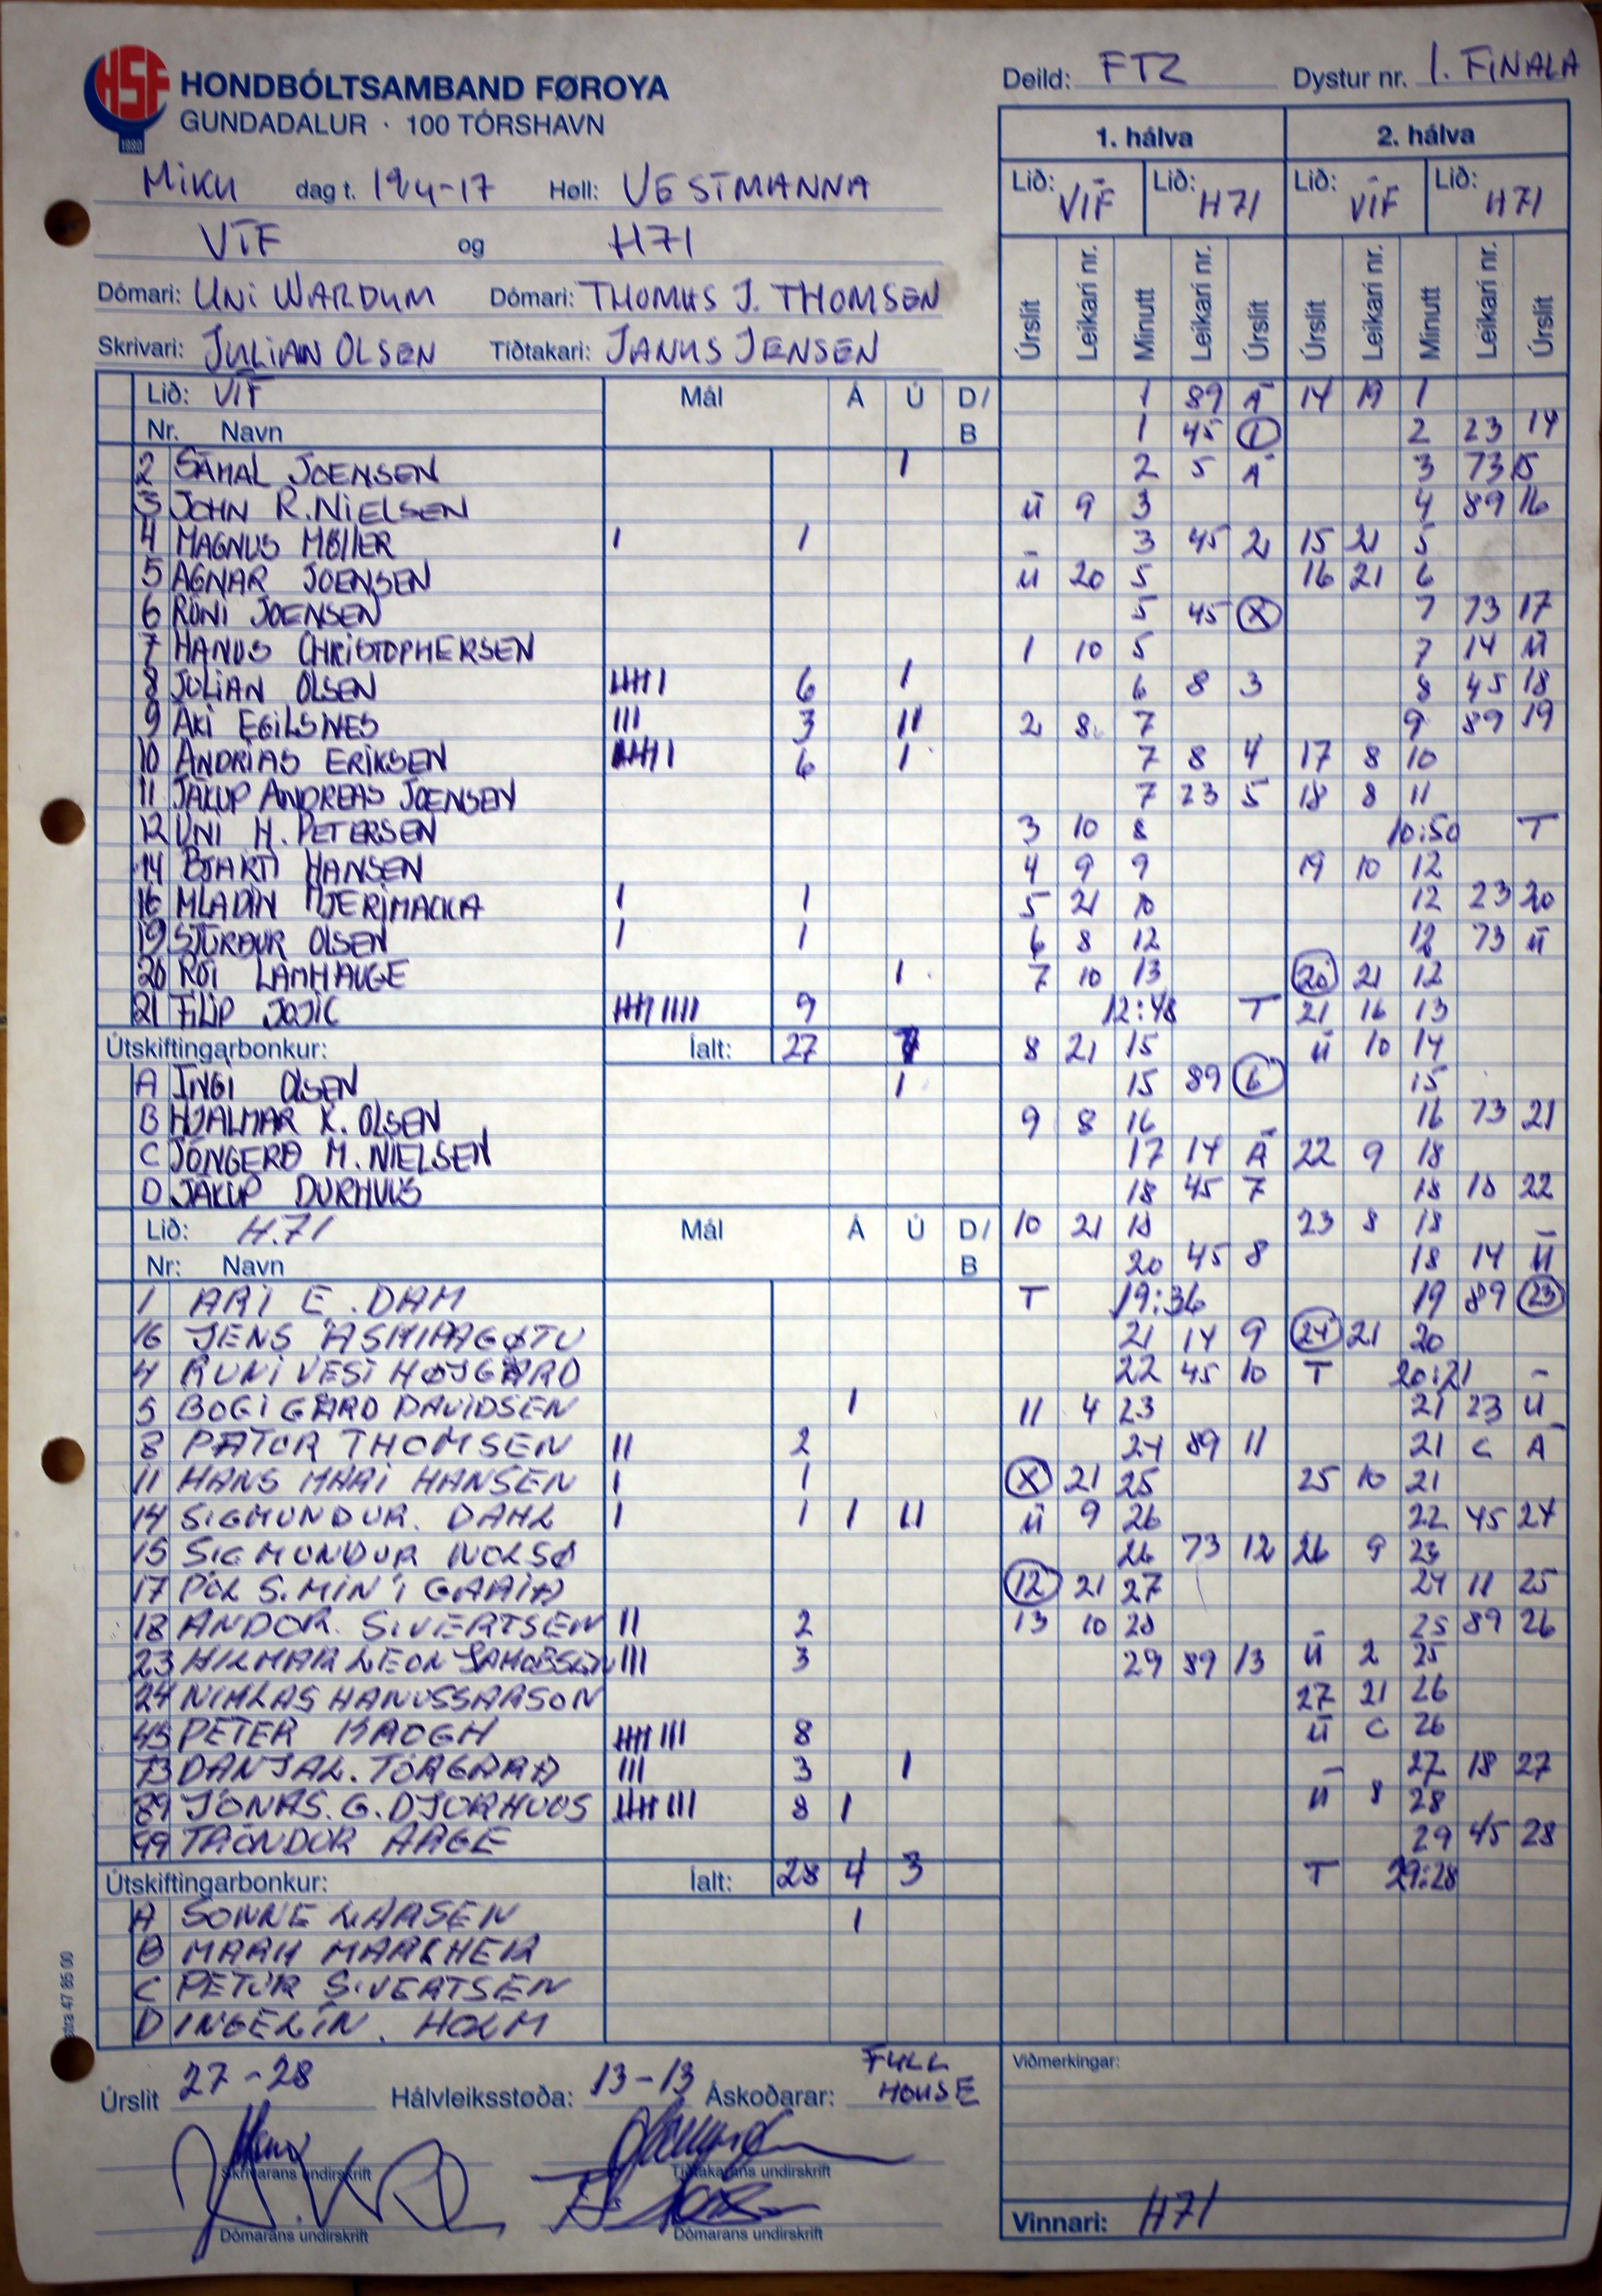 HSF
1980
HONDBÓLTSAMBAND FØROYA
GUNDADALUR · 100 TÓRSHAVN
Deild: FTZ Dystur nr. 1. FINALA
MIKU dag t. 19/4-17 Høll: VESTMANNA
VÍF og H71
Dómari: UNI WARDUM Dómari: THOMAS J. THOMSEN
Skrivari: JULIAN OLSEN Tíðtakari: JANUS JENSEN
1. hálva 2. hálva
Lið: VÍF Lið: H71 Lið: VÍF Lið: H71
Úrslit Leikari nr. Minutt Leikari nr. Úrslit Úrslit Leikari nr. Minutt Leikari nr. Úrslit
Lið: VÍF Mál Á Ú D/
Nr. Navn B
2 SÁMAL JOENSEN 1
3 JOHN R. NIELSEN
4 MAGNUS MØLLER I 1
5 AGNAR JOENSEN
6 RÓNI JOENSEN
7 HANUS CHRISTOPHERSEN
8 JULIAN OLSEN IIIII I 6 1
9 ÁKI EGILSNES III 3 II
10 ANDRIAS ERIKSEN IIIII I 6 1
11 JÁKUP ANDREAS JOENSEN
12 UNI H. PETERSEN
14 BJARTI HANSEN
16 MLADIN I 1
19 STURÐUR OLSEN I 1
20 RÓI LAMHAUGE 1
21 FILIP JOJIC IIIII IIII 9
Útskiftingarbonkur: Íalt: 27 7
A INGI OLSEN 1
B HJALMAR K. OLSEN
C JÓNGERÐ M. NIELSEN
D JÁKUP DURHUUS
Lið: H.71 Mál Á Ú D/
Nr: Navn B
1 ARI E. DAM
16 JENS ÁSMIAGØTU
4 RÚNI VESTHØJGARD
5 BOGI GARD DAVIDSEN 1
8 PÁTUR THOMSEN II 2
11 HANS MÁRI HANSEN I 1
14 SIGMUNDUR. DAHL I 1 1 II
15 SIGMUNDUR NOLSØ
17 PÓL S. MIN'I GARIÐ
18 ANDOR. SIVERTSEN II 2
23 HILMAR LEON JAKOBSEN III 3
24 NIKLAS HANUSSARSON
45 PETER KROGH IIIII III 8
73 DANJAL. TORGARÐ III 3 1
89 JÓNAS. G. DJURHUUS IIIII III 8 1
99 TRÓNDUR AAGE
Útskiftingarbonkur: Íalt: 28 4 3
A SONNE LARSEN 1
B MARK MARKHER
C PETUR SIVERTSEN
D INGELÍN. HOLM
1 89 Á 14 19 1
1 45 1 2 23 14
2 5 Á 3 73 15
Ú 9 3 4 89 16
3 45 2 15 21 5
Ú 20 5 16 21 6
5 45 X 7 73 17
1 10 5 7 14 Ú
6 8 3 8 45 18
2 8 7 9 89 19
7 8 4 17 8 10
7 23 5 18 8 11
3 10 8 10:50 T
4 9 9 19 10 12
5 21 10 12 23 20
6 8 12 12 73 Ú
7 10 13 20 21 12
12:48 T 21 16 13
8 21 15 Ú 10 14
15 89 6 15
9 8 16 16 73 21
17 14 Á 22 9 18
18 45 7 18 18 22
10 21 18 23 8 18
20 45 8 18 14 Ú
T 19:36 19 89 23
21 14 9 24 21 20
22 45 10 T 20:21
11 4 23 21 23 Ú
24 89 11 21 C Á
X 21 25 25 10 21
Ú 9 26 22 45 24
26 73 12 26 9 23
12 21 27 24 11 25
13 10 28 25 89 26
29 89 13 Ú 2 25
27 21 26
Ú C 26
27 18 27
Ú 8 28
29 45 28
T 29:28
Úrslit 27-28 Hálvleiksstøða: 13-13 Áskoðarar: FULL HOUSE
Skrivarans undirskrift Tíðtakarans undirskrift
Dómarans undirskrift Dómarans undirskrift
Viðmerkingar:
Vinnari: H71
47 85 00